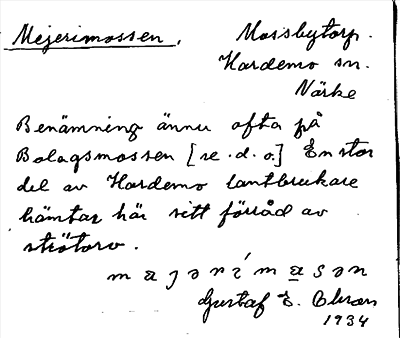 Mejerimossen. Mossbytorp.
Hardemo sn.
Närke
Benämning ännu ofta på
Bolagsmossen [se.d.o.] En stor
del av Hardemo lantbrukare
hämtar här sitt förråd av
strötorv.
Gustaf E.
1934